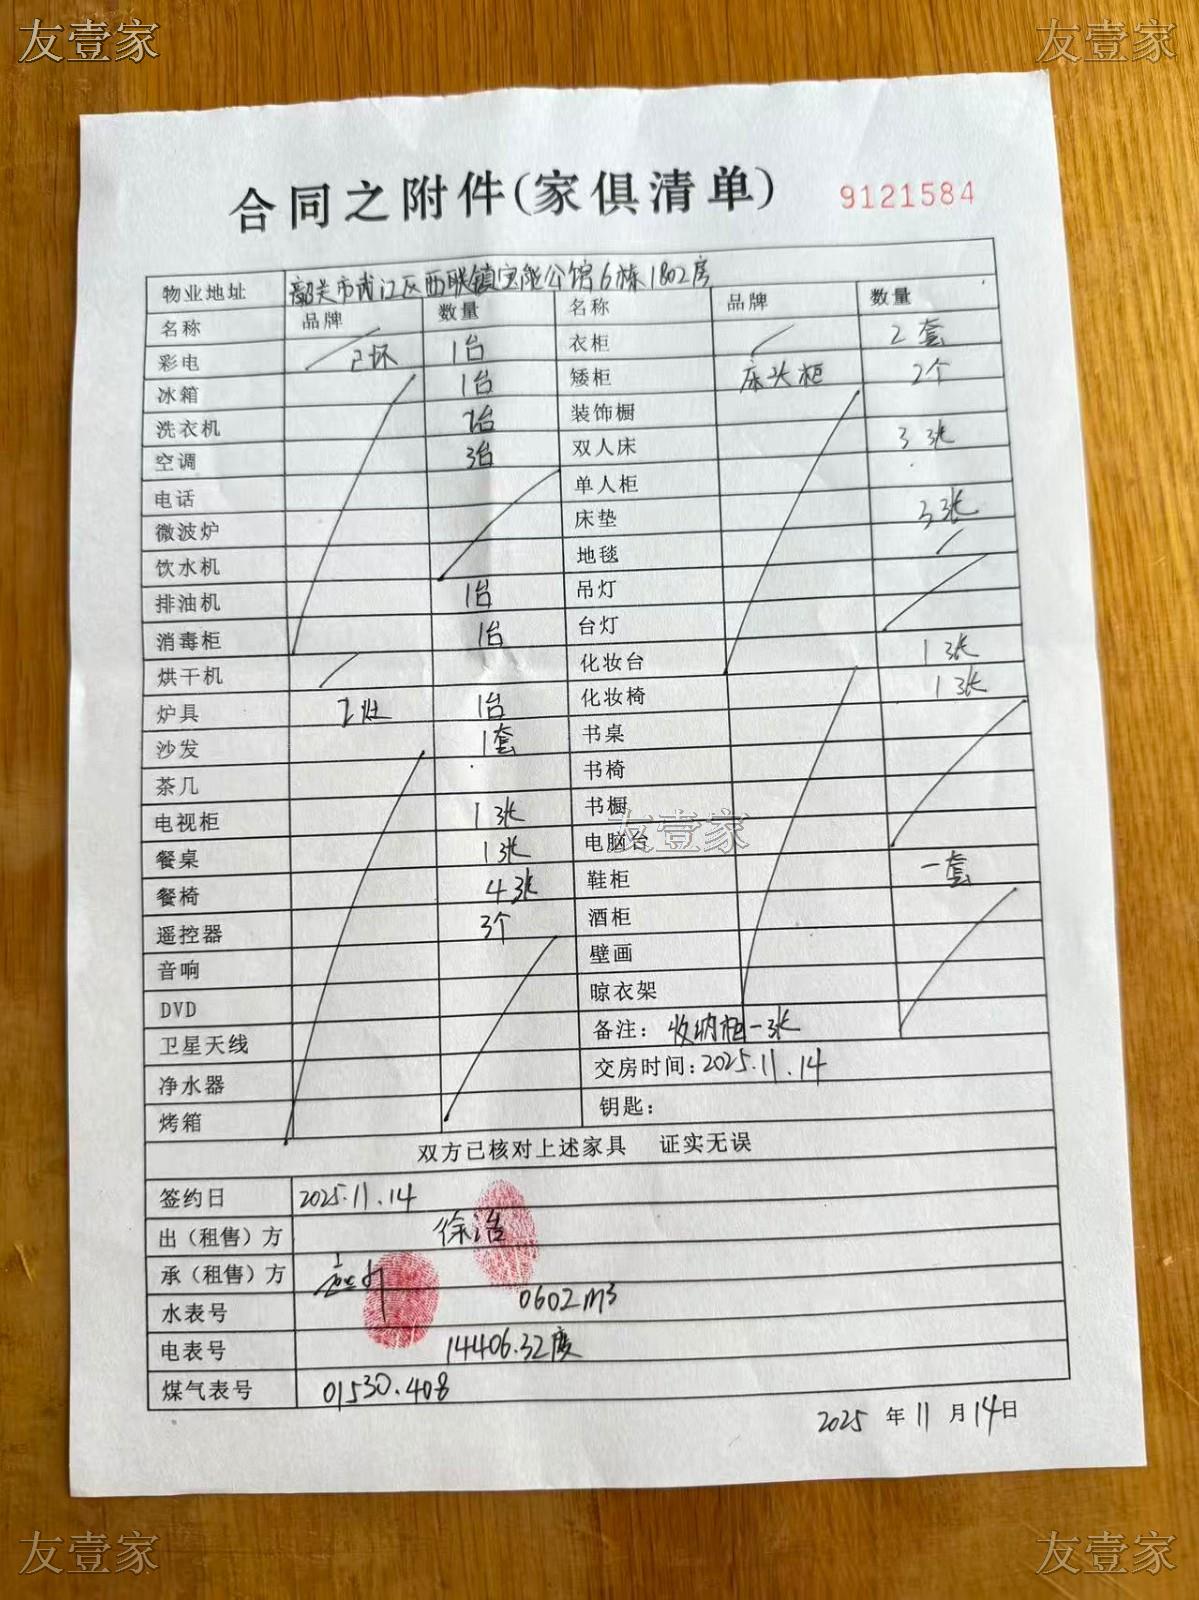 友壹家 友壹家
合同之附件(家俱清单) 9121584
物业地址 韶关市武江区西联镇宝能公馆6栋1802房
名称 品牌 数量 名称 品牌 数量
彩电 已坏 1台 衣柜 2套
冰箱 1台 矮柜 床头柜 2个
洗衣机 台 装饰橱
空调 3台 双人床 3张
电话 单人柜
微波炉 床垫 3张
饮水机 地毯
排油机 1台 吊灯
消毒柜 1台 台灯
烘干机 化妆台 1张
炉具 灶 1台 化妆椅 1张
沙发 1套 书桌
茶几 书椅
电视柜 1张 书橱
友壹家
餐桌 1张 电脑台
餐椅 4张 鞋柜 一套
遥控器 3个 酒柜
音响 壁画
DVD 晾衣架
卫星天线 备注：收纳柜一张
净水器 交房时间：2025.11.14
烤箱 钥匙：
双方已核对上述家具 证实无误
签约日 2025.11.14
出（租售）方 徐浩
承（租售）方
水表号 0602m³
电表号 14406.32度
煤气表号 01530.408
2025 年 11 月 14 日
友壹家 友壹家